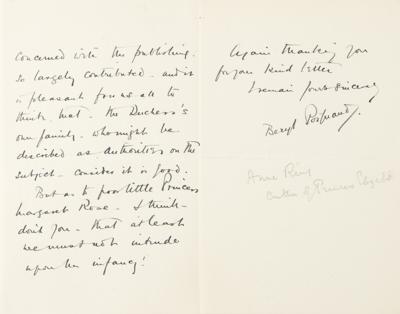 concerned with the publishing.
so largely contributed - and it
is pleasant for us all to
think that - the Duchess's
own family - who might be
described as authorities on the
subject - consider it is good.
But as to poor little Princess
Margaret Rose - I think -
don't you - that at least
we must not intrude
upon her infancy!
Again thanking you
for your kind letter
I remain yours sincerely
Beryl
Anne Ring
Author of Princess Elizabeth